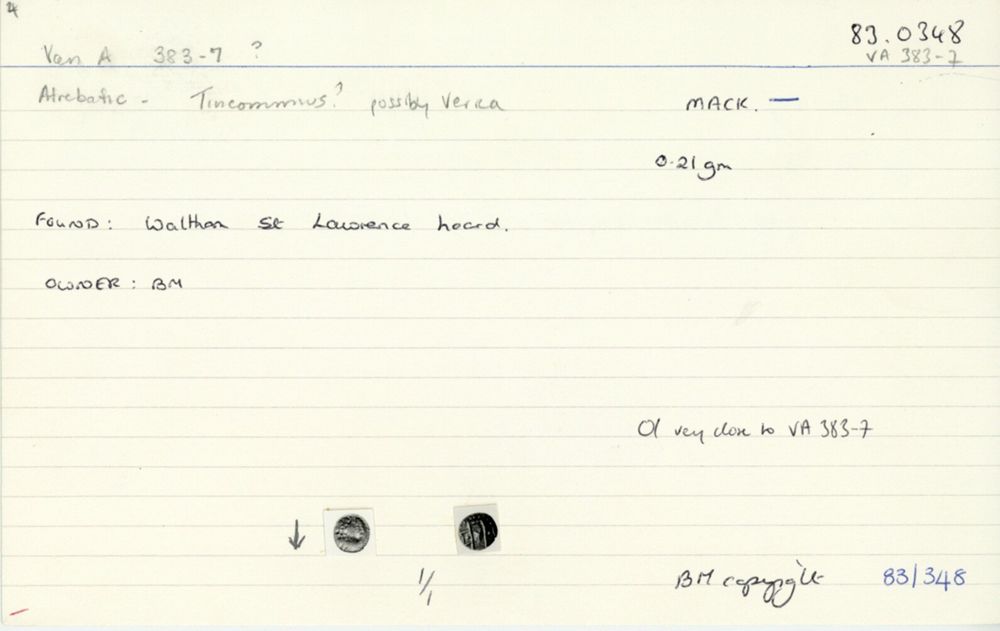 4
83.0348
Van A 383-7 ?
VA 383-7
Atrebatic - Tincommius? possibly Verica
MACK. —
0.21 gm
FOUND: Waltham St Lawrence hoard.
OWNER: BM
Ol very close to VA 383-7
↓
1/1
BM copyright 83/348